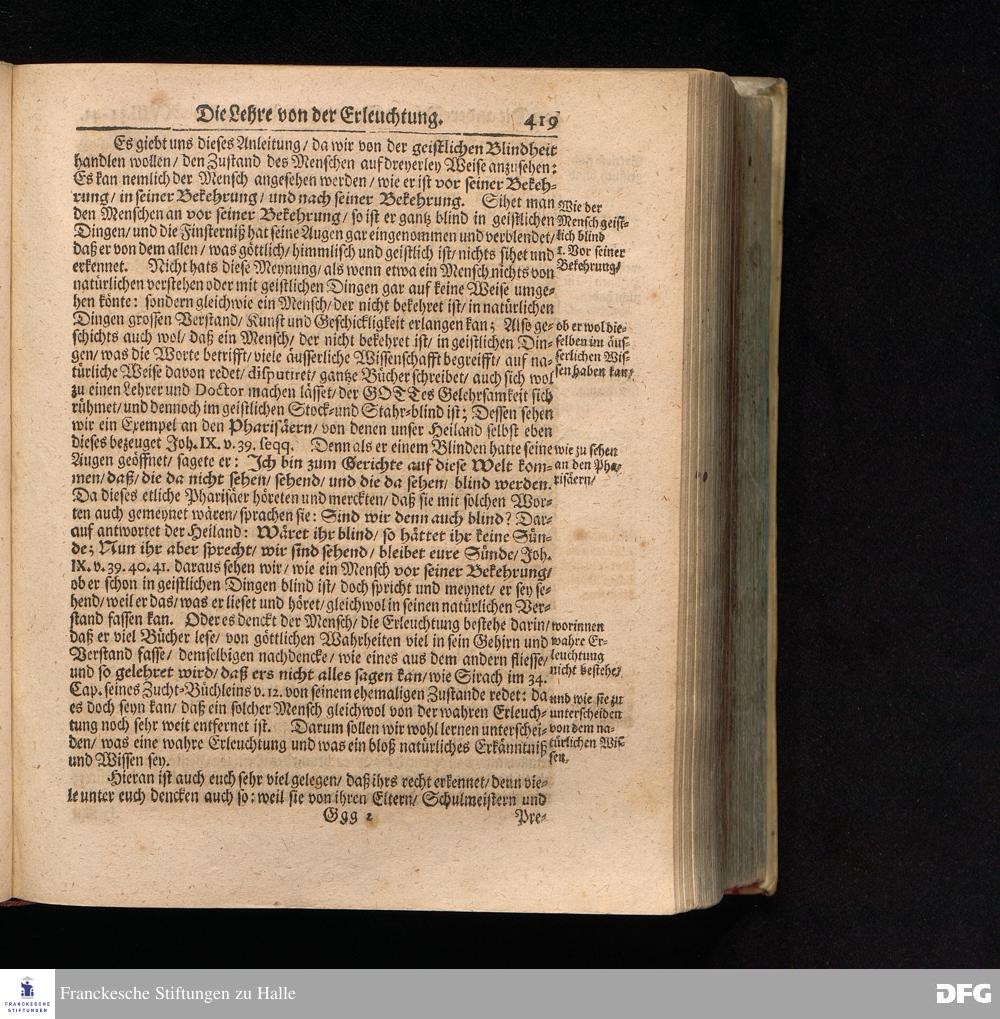 Die Lehre von der Erleuchtung. 419
Es giebt uns dieses Anleitung/ da wir von der geistlichen Blindheit
handlen wollen/ den Zustand des Menschen auf dreyerley Weise anzusehen:
Es kan nemlich der Mensch angesehen werden/ wie er ist vor seiner Bekeh-
rung/ in seiner Bekehrung/ und nach seiner Bekehrung. Sihet man
den Menschen an vor seiner Bekehrung/ so ist er gantz blind in geistlichen
Dingen/ und die Finsterniß hat seine Augen gar eingenommen und verblendet/
daß er von dem allen/ was göttlich/ himmlisch und geistlich ist/ nichts sihet und
erkennet. Nicht hats diese Meynung/ als wenn etwa ein Mensch nichts von
natürlichen verstehen oder mit geistlichen Dingen gar auf keine Weise umge-
hen könte: sondern gleichwie ein Mensch/ der nicht bekehret ist/ in natürlichen
Dingen grossen Verstand/ Kunst und Geschickligkeit erlangen kan; Also ge-
schichts auch wol/ daß ein Mensch/ der nicht bekehret ist/ in geistlichen Din-
gen/ was die Worte betrifft/ viele äusserliche Wissenschafft begreifft/ auf na-
türliche Weise davon redet/ disputiret/ gantze Bücher schreibet/ auch sich wol
zu einen Lehrer und Doctor machen lässet/ der GOTTes Gelehrsamkeit sich
rühmet/ und dennoch im geistlichen Stock- und Stahr-blind ist; Dessen sehen
wir ein Exempel an den Pharisäern/ von denen unser Heiland selbst eben
dieses bezeuget Joh. IX. v. 39. seqq. Denn als er einem Blinden hatte seine
Augen geöffnet/ sagete er: Ich bin zum Gerichte auf diese Welt kom-
men/ daß/ die da nicht sehen/ sehend/ und die da sehen/ blind werden.
Da dieses etliche Pharisäer höreten und merckten/ daß sie mit solchen Wor-
ten auch gemeynet wären/ sprachen sie: Sind wir denn auch blind? Dar-
auf antwortet der Heiland: Wäret ihr blind/ so hättet ihr keine Sün-
de; Nun ihr aber sprecht/ wir sind sehend/ bleibet eure Sünde/ Joh.
IX. v. 39. 40. 41. daraus sehen wir/ wie ein Mensch vor seiner Bekehrung/
ob er schon in geistlichen Dingen blind ist/ doch spricht und meynet/ er sey se-
hend/ weil er das/ was er lieset und höret/ gleichwol in seinen natürlichen Ver-
stand fassen kan. Oder es denckt der Mensch/ die Erleuchtung bestehe darin/
daß er viel Bücher lese/ von göttlichen Wahrheiten viel in sein Gehirn und
Verstand fasse/ demselbigen nachdencke/ wie eines aus dem andern fliesse/
und so gelehret wird/ daß ers nicht alles sagen kan/ wie Sirach im 34.
Cap. seines Zucht-Büchleins v. 12. von seinem ehemaligen Zustande redet: da
es doch seyn kan/ daß ein solcher Mensch gleichwol von der wahren Erleuch-
tung noch sehr weit entfernet ist. Darum sollen wir wohl lernen unterschei-
den/ was eine wahre Erleuchtung und was ein bloß natürliches Erkänntniß
und Wissen sey.
Hieran ist auch euch sehr viel gelegen/ daß ihrs recht erkennet/ denn vie-
le unter euch dencken auch so: weil sie von ihren Eltern/ Schulmeistern und
Ggg 2 Pre-
Wie der
Mensch geist-
lich blind
1. Vor seiner
Bekehrung/
ob er wol die-
selben im äus-
serlichen Wis-
sen haben kan/
wie zu sehen
an den Pha-
risäern/
worinnen
wahre Er-
leuchtung
nicht bestehe/
und wie sie zu
unterscheiden
von dem na-
türlichen Wis-
sen.
FRANCKESCHE
STIFTUNGEN
Franckesche Stiftungen zu Halle
DFG